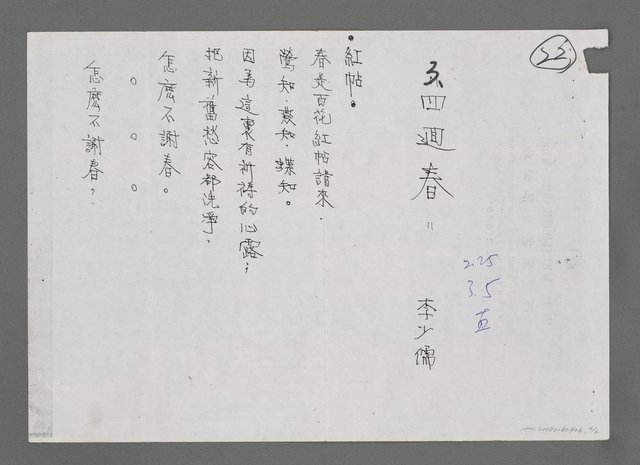 22
四週春
李少儒
2.25
3.5
直
•紅帖•
春是百花紅帖請來，
鶯知、燕知、蝶知。
因為這裏有祈禱的心露；
把新舊愁容都洗淨，
怎麼不謝春。
○ ○ ○
怎麼不謝春？